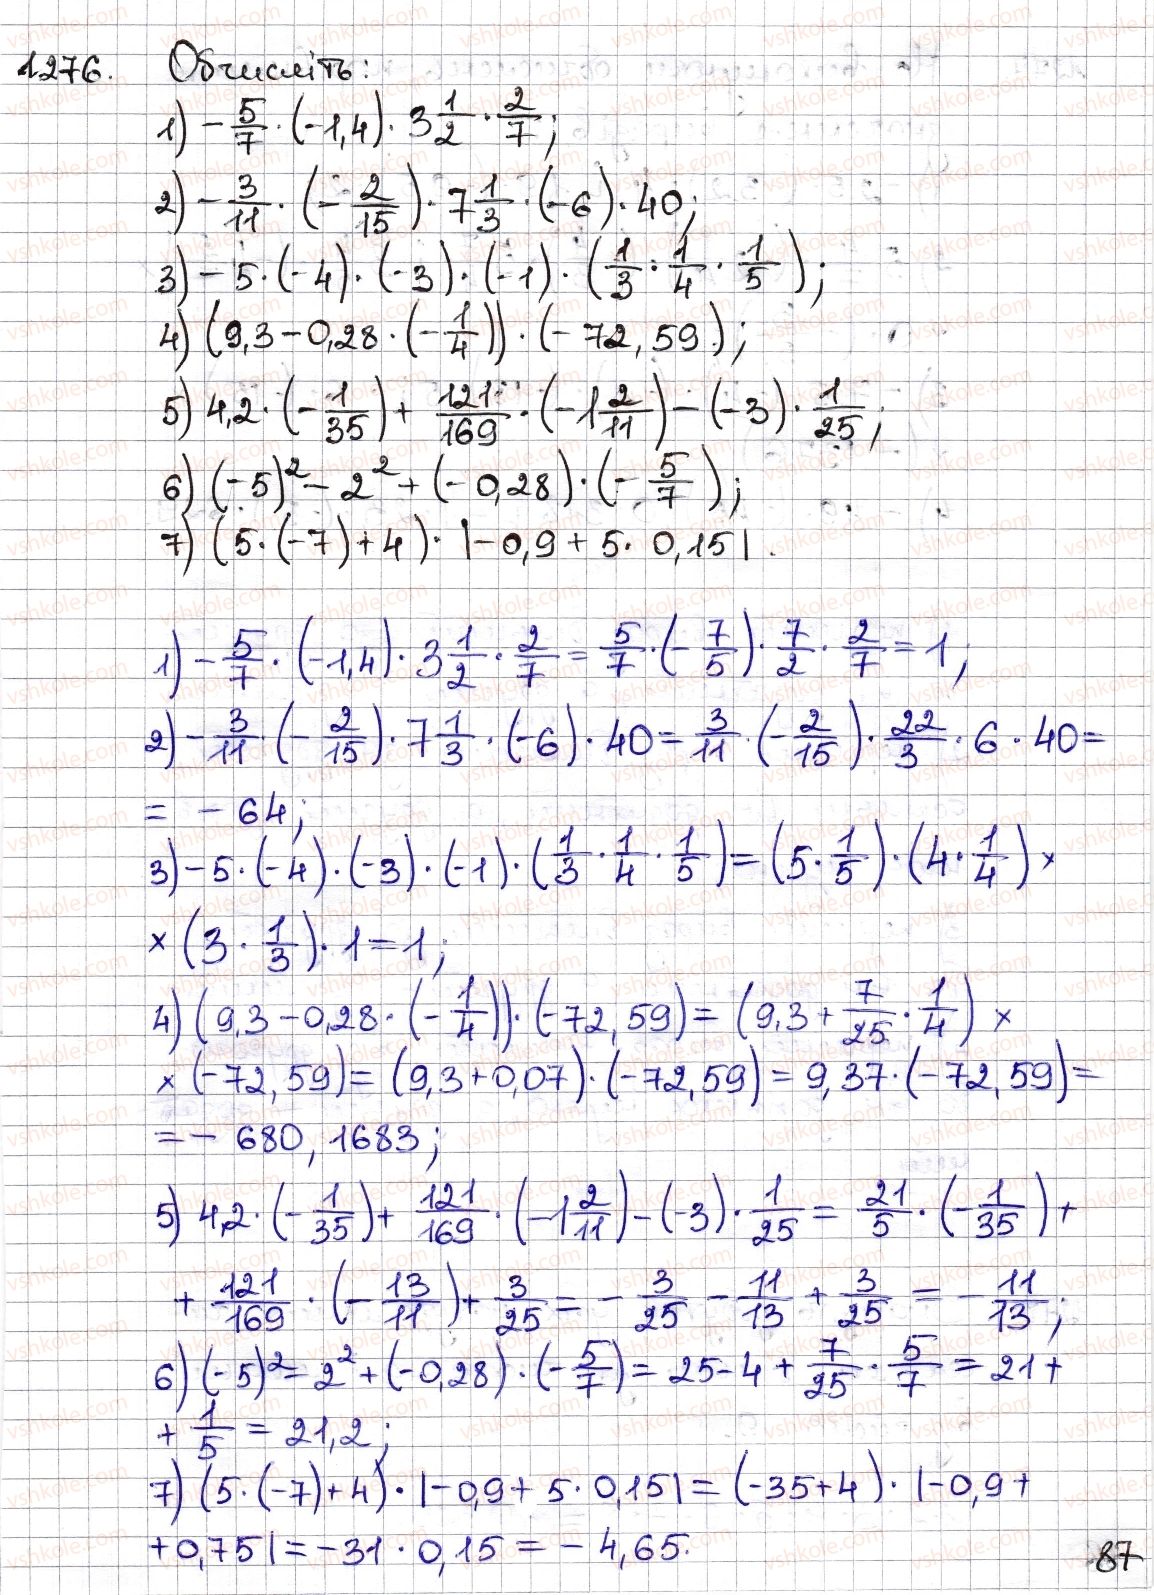 1276. Обчисліть:
1) -5/7 · (-1,4) · 3 1/2 · 2/7;
2) -3/11 · (-2/15) · 7 1/3 · (-6) · 40;
3) -5 · (-4) · (-3) · (-1) · (1/3 · 1/4 · 1/5);
4) (9,3 - 0,28 · (-1/4)) · (-72,59);
5) 4,2 · (-1/35) + 121/169 · (-1 2/11) - (-3) · 1/25;
6) (-5)² - 2² + (-0,28) · (-5/7);
7) (5 · (-7) + 4) · |-0,9 + 5 · 0,15|.
1) -5/7 · (-1,4) · 3 1/2 · 2/7 = 5/7 · (-7/5) · 7/2 · 2/7 = 1;
2) -3/11 · (-2/15) · 7 1/3 · (-6) · 40 = 3/11 · (-2/15) · 22/3 · 6 · 40 =
= -64;
3) -5 · (-4) · (-3) · (-1) · (1/3 · 1/4 · 1/5) = (5 · 1/5) · (4 · 1/4) ×
× (3 · 1/3) · 1 = 1;
4) (9,3 - 0,28 · (-1/4)) · (-72,59) = (9,3 + 7/25 · 1/4) ×
× (-72,59) = (9,3 + 0,07) · (-72,59) = 9,37 · (-72,59) =
= -680,1683;
5) 4,2 · (-1/35) + 121/169 · (-1 2/11) - (-3) · 1/25 = 21/5 · (-1/35) +
+ 121/169 · (-13/11) + 3/25 = -3/25 - 11/13 + 3/25 = -11/13;
6) (-5)² = 2² + (-0,28) · (-5/7) = 25 - 4 + 7/25 · 5/7 = 21 +
+ 1/5 = 21,2;
7) (5 · (-7) + 4) · |-0,9 + 5 · 0,15| = (-35 + 4) · |-0,9 +
+ 0,75| = -31 · 0,15 = -4,65.
87